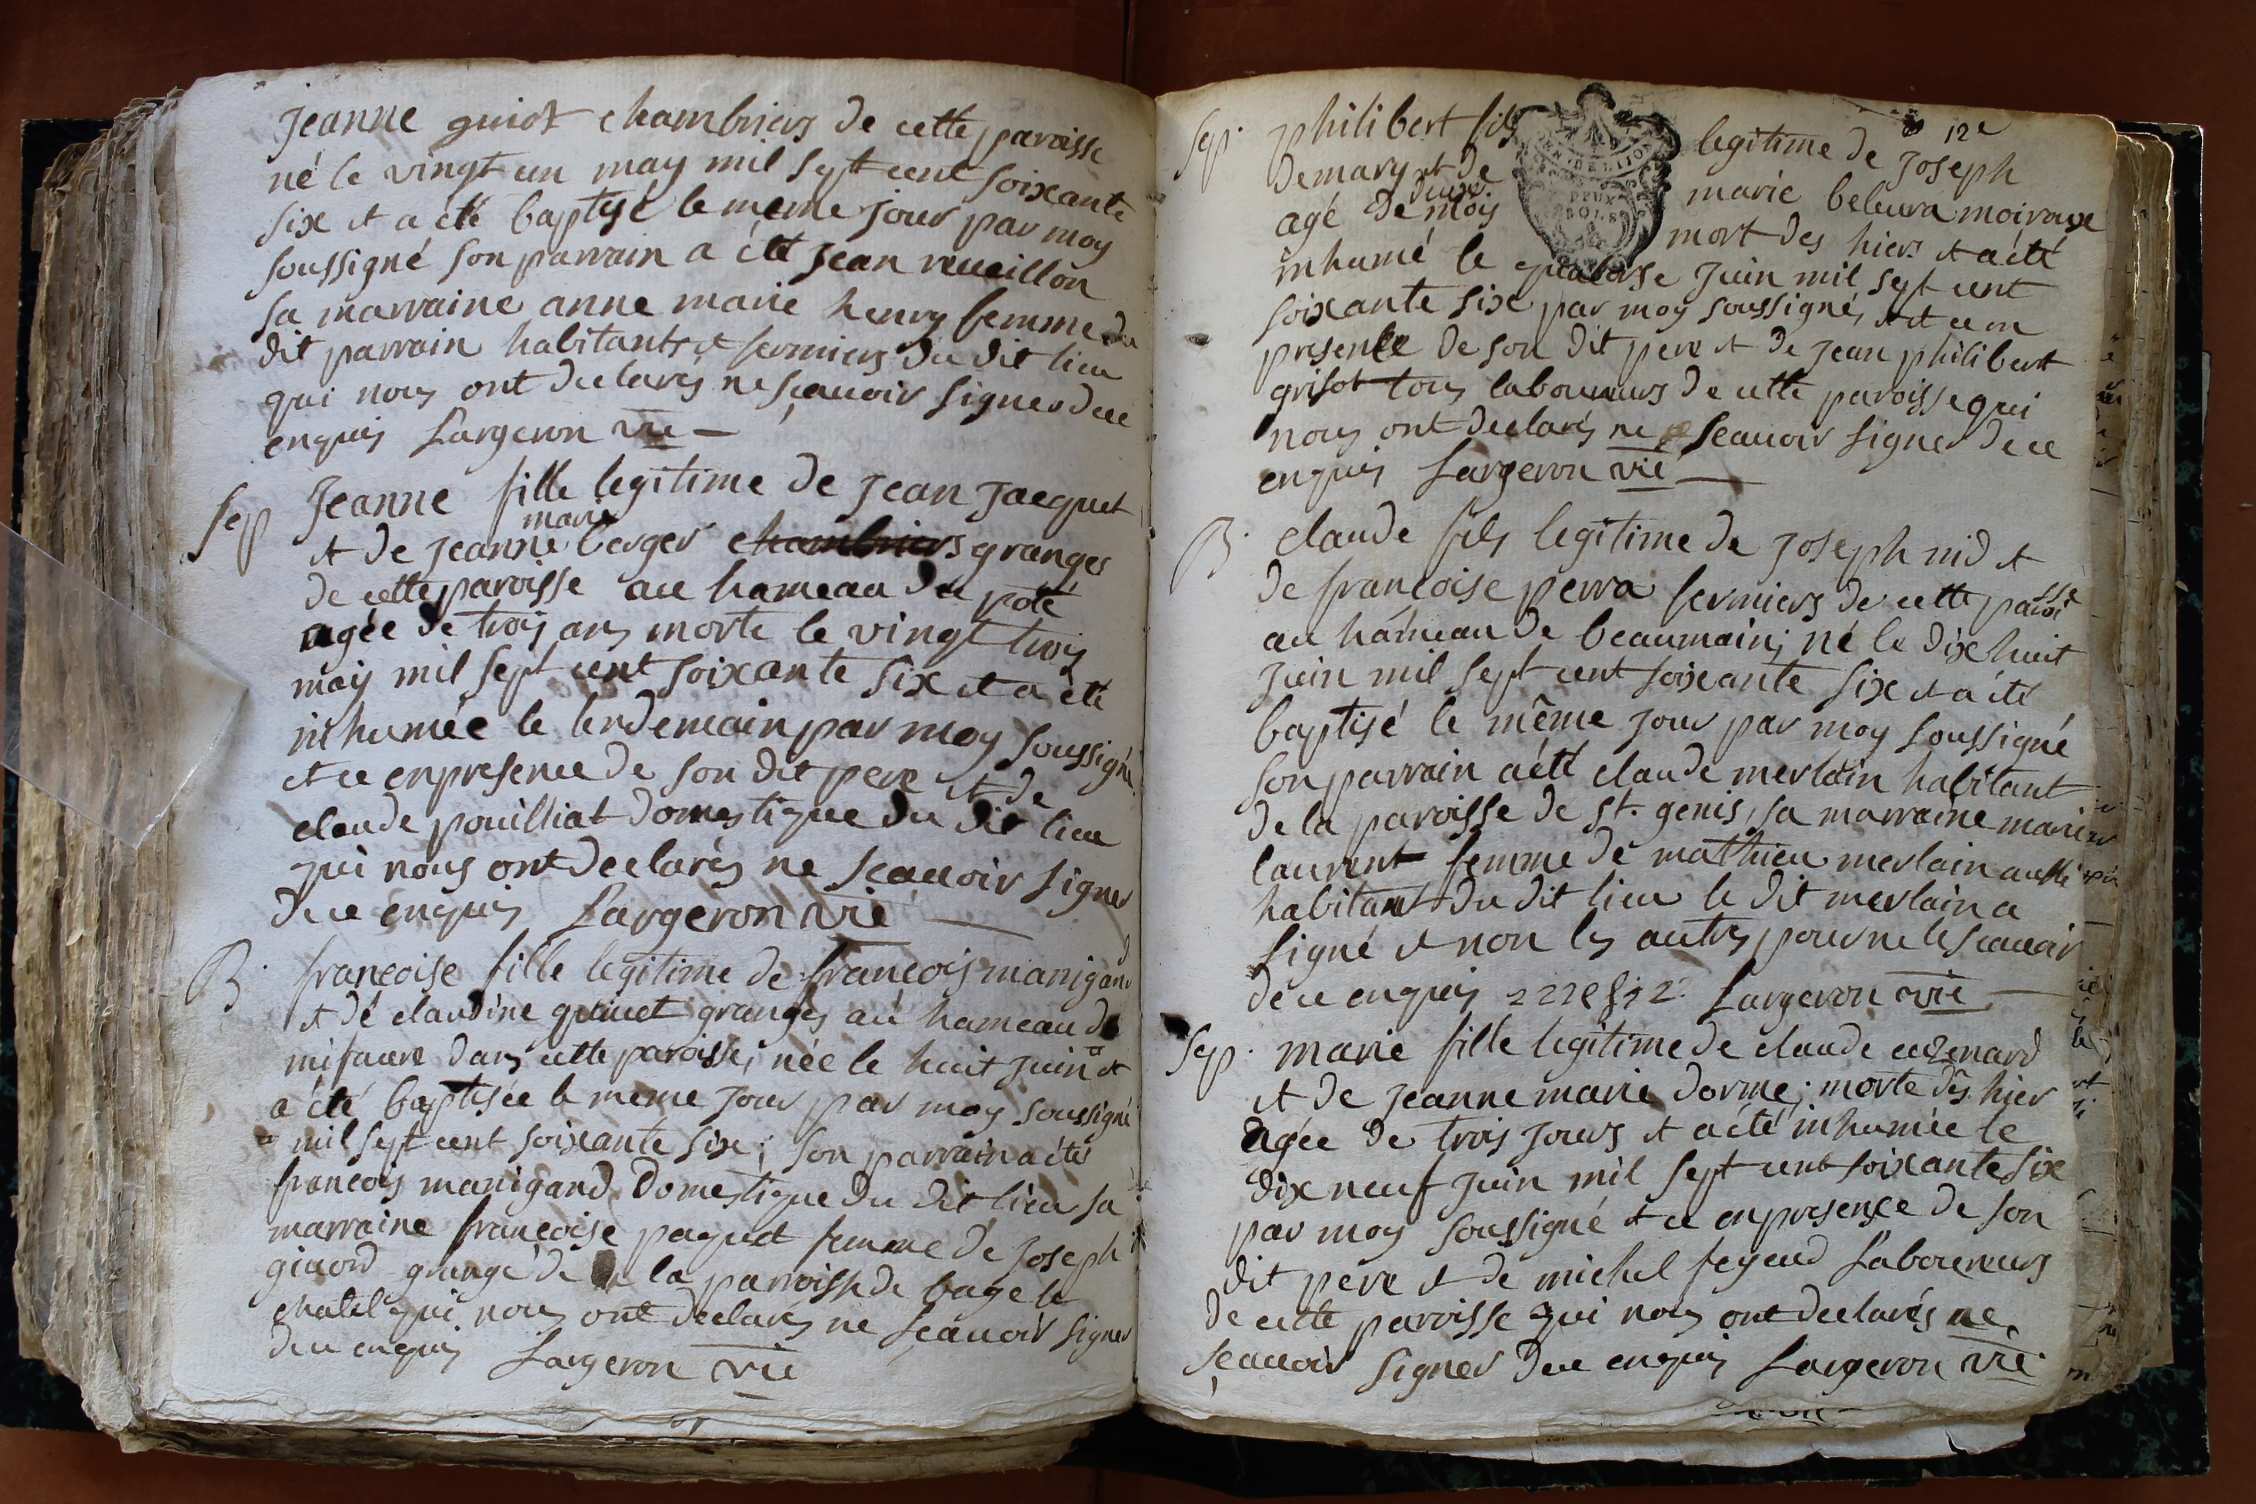 Jeanne guiot chambriers de cette paroisse
né le vingt un may mil sept cent soixante
six et a été baptisé le meme jour par moy
soussigné son parrain a été Jean reveillon
sa marraine anne marie henry femme du
dit parrain habitants et fermiers du dit lieu
qui nous ont declarés ne sçauoir signer de ce
enquis Largeron vic
Sep Jeanne fille legitime de Jean Jacquet
et de Jeanne marie berger chambriers granges
de cette paroisse au hameau du poté
agée de trois ans morte le vingt trois
may mil sept cent soixante six et a été
inhumée le lendemain par moy soussigné
et ce en presence de son dit pere et de
claude pouilliat domestique du dit lieu
qui nous ont declarés ne sçauoir signer
de ce enquis Largeron vic
B. francoise fille legitime de francois manigand
et de claudine quinet granges au hameau de
mifaure dans cette paroisse, née le huit juin et
a été baptisée le meme jour par moy soussigné
mil sept cent soixante six; son parrain a été
francois manigand domestique du dit lieu sa
marraine francoise paquet femme de Joseph
girord grangé de la parroisse de bage le
chatel qui nous ont declarés ne sçauoir signer
de ce enquis Largeron vic
12e
Sep. philibert fils legitime de Joseph
demary et de marie beleura moiraux
agé de deux mois mort des hier et a été
inhumé le quatorse Juin mil sept cent
soixante six par moy soussigné, et ce en
presence de son dit pere et de Jean philibert
grisot tous laboureurs de cette paroisse qui
nous ont declarés ne sçauoir signer de ce
enquis Largeron vic
B. claude fils legitime de Joseph nid et
de francoise perra fermiers de cette paroisse
au hameau de beaumain; né le dix huit
Juin mil sept cent soixante six et a été
baptisé le même jour par moy soussigné
son parrain a été claude merlain habitant
de la paroisse de st. genis, sa marraine marie
laurent femme de mathieu merlain aussi
habitant du dit lieu le dit merlain a
signé et non les autres pour ne le sçauoir
de ce enquis Largeron vic
Sep. marie fille legitime de claude
et de Jeanne marie dorme; morte dès hier
agée de trois jours et a été inhumée le
dix neuf juin mil sept cent soixante six
par moy soussigné et ce en presençe de son
dit pere et de michel feyeud Laboureurs
de cette paroisse qui nous ont declarés ne
sçauoir signer de ce enquis Largeron vic